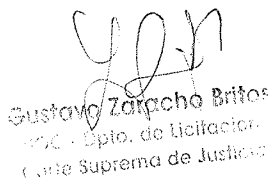 Gustavo Zaracho Britos
Dpto. de Licitacion
Corte Suprema de Justicia